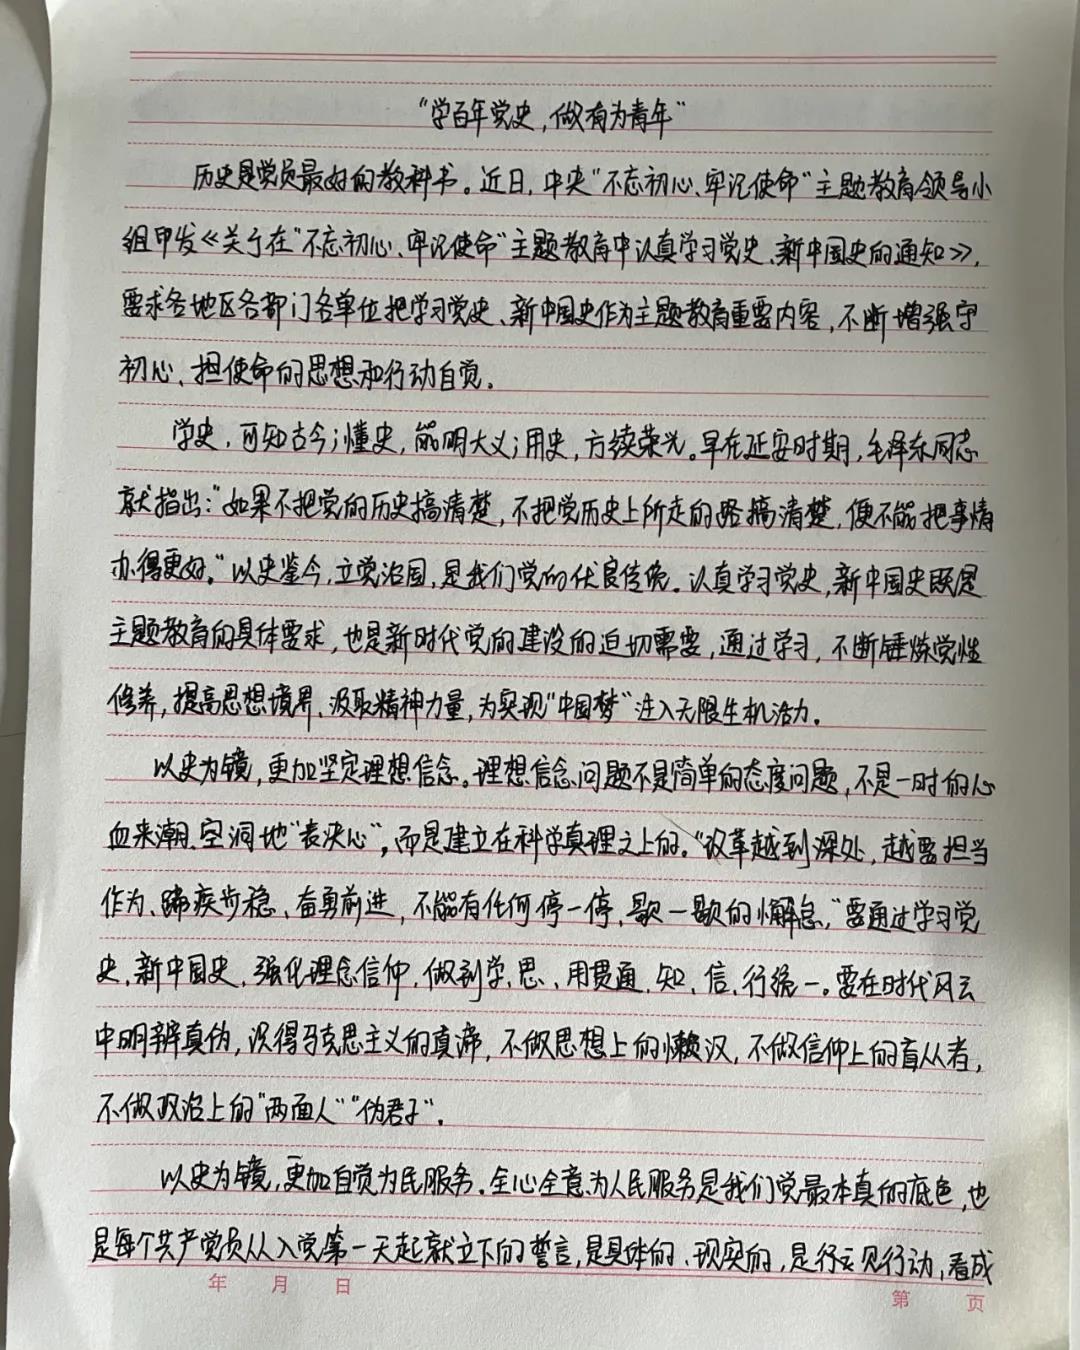 “学百年党史，做有为青年”
历史是党员最好的教科书。近日，中央“不忘初心、牢记使命”主题教育领导小
组印发《关于在“不忘初心、牢记使命”主题教育中认真学习党史、新中国史的通知》，
要求各地区各部门各单位把学习党史、新中国史作为主题教育重要内容，不断增强守
初心、担使命的思想和行动自觉。
学史，可知古今；懂史，能明大义；用史，方续荣光。早在延安时期，毛泽东同志
就指出：“如果不把党的历史搞清楚，不把党历史上所走的路搞清楚，便不能把事情
办得更好。”以史鉴今，立党治国，是我们党的优良传统。认真学习党史，新中国史既是
主题教育的具体要求，也是新时代党的建设的迫切需要，通过学习，不断锤炼党性
修养，提高思想境界、汲取精神力量，为实现“中国梦”注入无限生机活力。
以史为镜，更加坚定理想信念。理想信念问题不是简单的态度问题，不是一时的心
血来潮、空洞地“表决心”，而是建立在科学真理之上的。“改革越到深处，越要担当
作为、蹄疾步稳、奋勇前进，不能有任何停一停、歇一歇的懈怠，”要通过学习党
史、新中国史，强化理念信仰，做到学、思、用贯通，知、信、行统一。要在时代风云
中明辨真伪，识得马克思主义的真谛，不做思想上的懒汉，不做信仰上的盲从者，
不做政治上的“两面人”“伪君子”。
以史为镜，更加自觉为民服务。全心全意为人民服务是我们党最本真的底色，也
是每个共产党员从入党第一天起就立下的誓言，是具体的、现实的，是行动见行动，看成
年 月 日
第 页